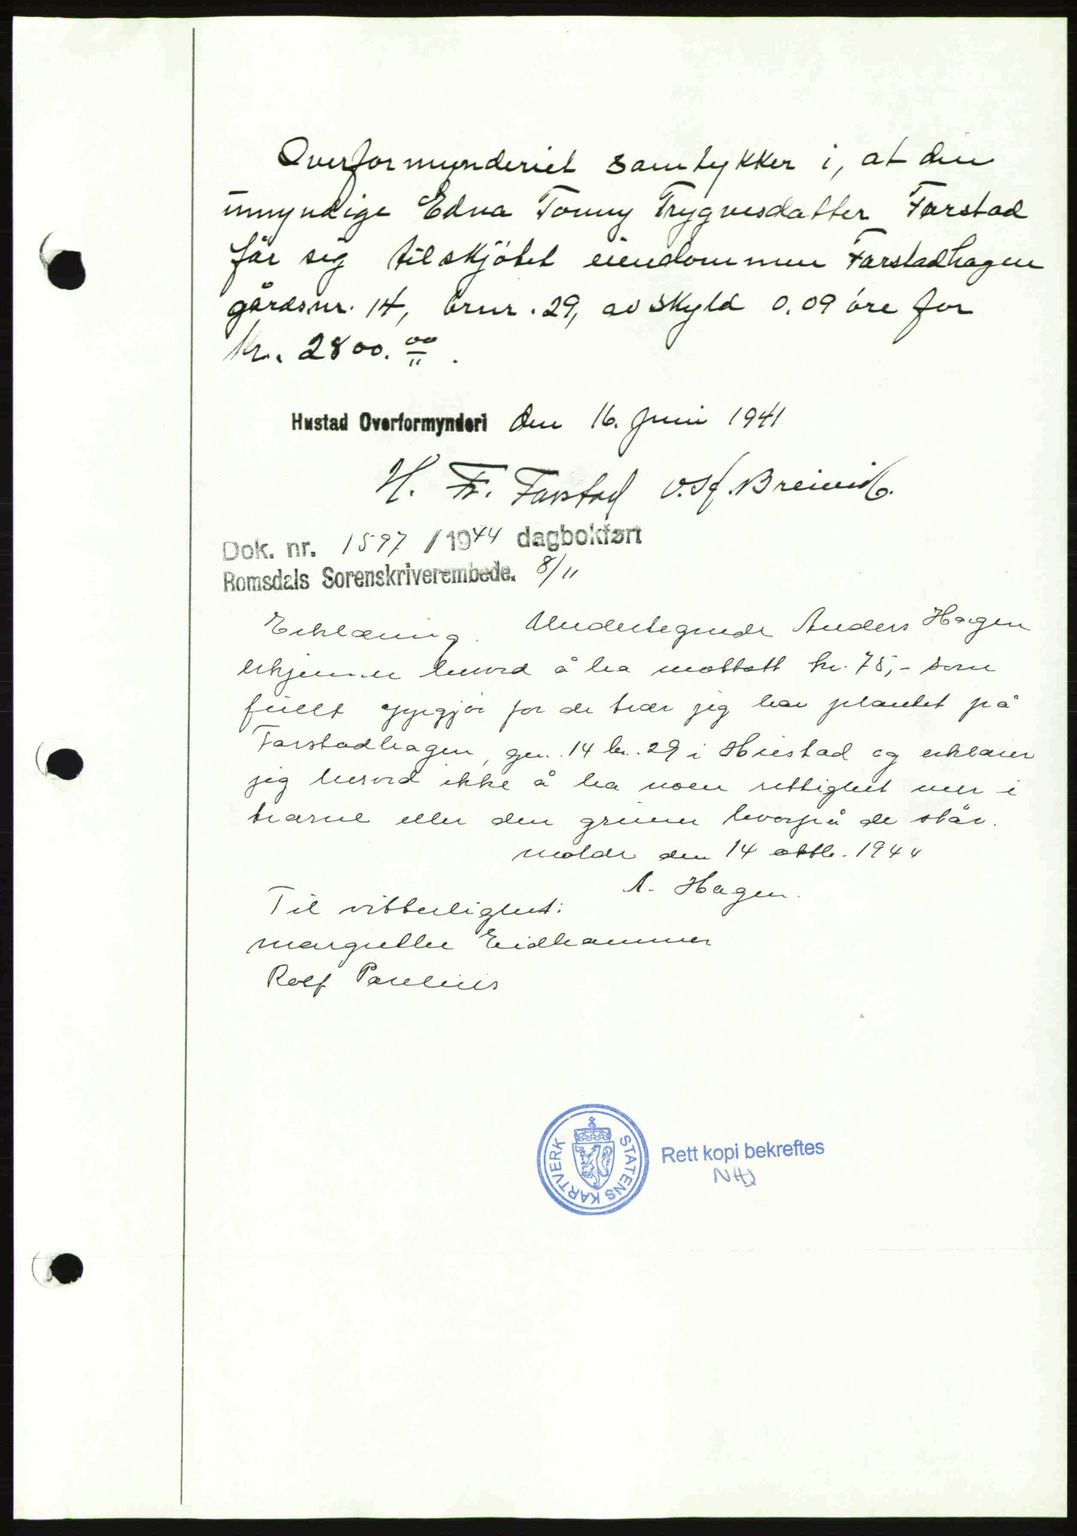 Overformynderiet samtykker i, at den
umyndige Edna Tonny Trygvesdatter Farstad
får sig tilskjötet eiendommen Farstadhagen
gårdsnr. 14, brnr. 29, av skyld 0.09 öre for
kr. 2800.00
Hustad Overformynderi den 16. Juni 1941
H. Fr. Farstad O.Sf. Breivik.
Dok. nr. 1597 / 1944 dagbokført
Romsdals Sorenskriverembede. 8/11
Erklæring. Undertegnede Anders Hagen
erkjenner herved å ha mottatt kr. 75,- som
fullt oppgjør for de trær jeg har plantet på
Farstadhagen, gn. 14 bn. 29 i Hustad og erklærer
jeg herved ikke å ha noen rettighet mer i
trærne eller den grunn hvorpå de står.
Molde den 14 oktb. 1944
A. Hagen.
Til vitterlighet:
Margrethe Eidhammer
Rolf Paulius
STATENS KARTVERK
Rett kopi bekreftes